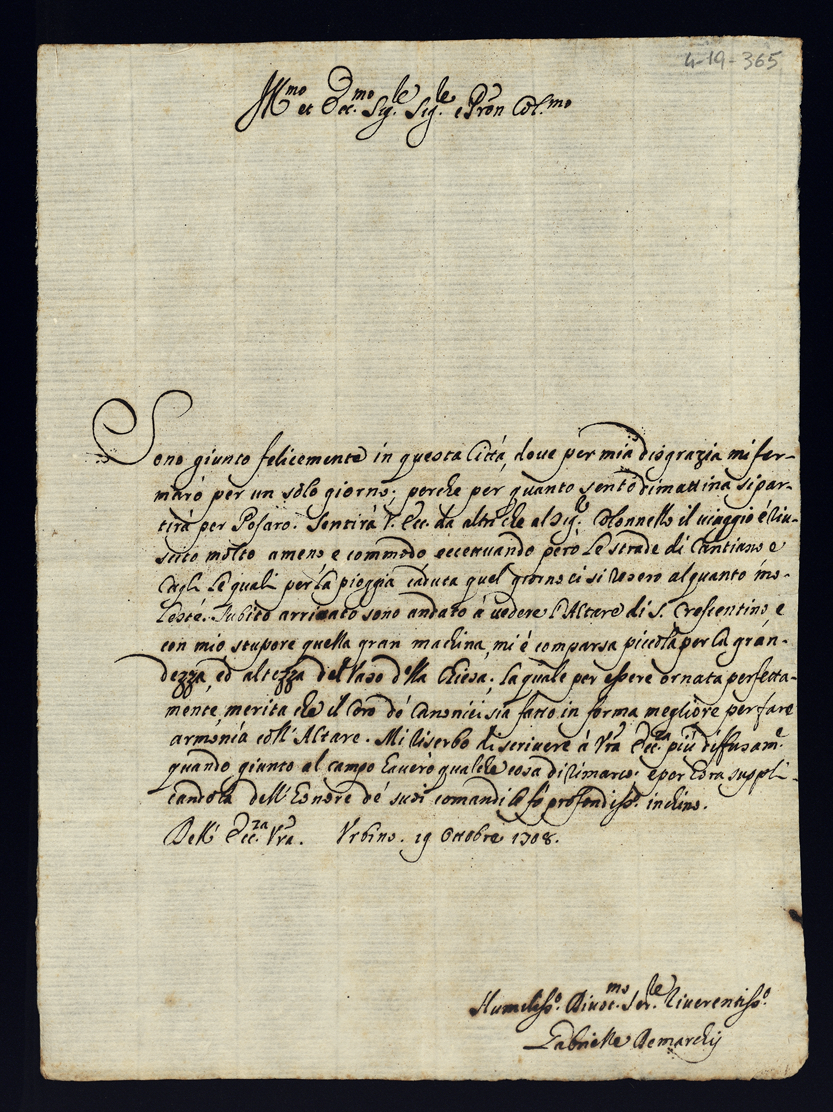 4-19-365
Ill.mo et Ecc.mo Sig.le Sig.le e Pron Col.mo
Sono giunto felicemente in questa Città, dove per mia disgrazia mi fer-
marò per un solo giorno; perche per quanto sento dimattina si par-
tirà per Pesaro. Sentirà V. Ecc. da altri che al Sig. Colonnello il viaggio é riu-
scito molto ameno e commodo eccettuando però le strade di Cantiano e
Cagli le quali per la pioggia caduta quel giorno ci si resero alquanto mo-
leste. Subito arrivato sono andato à vedere l'Altare di S. Crescentino, e
con mio stupore quella gran machina, mi é comparsa piccola per la gran-
dezza, ed altezza del Vaso della Chiesa; la quale per essere ornata perfetta-
mente, merita che il Coro de' Canonici sia fatto in forma megliore per fare
armonía coll'Altare. Mi riserbo di scrivere à Vra Ecc.za più diffusam.e
quando giunto al campo haverò qualche cosa di rimarco; e per hora suppli-
candola dell'honore de' suoi comandi le fò profondiss.o inchino.
Dell' Ecc.za Vra. Urbino. 19 Ottobre 1708.
Humiliss.o Divot.mo Ser.le Riverentiss.o
Gabrielle Demarchij